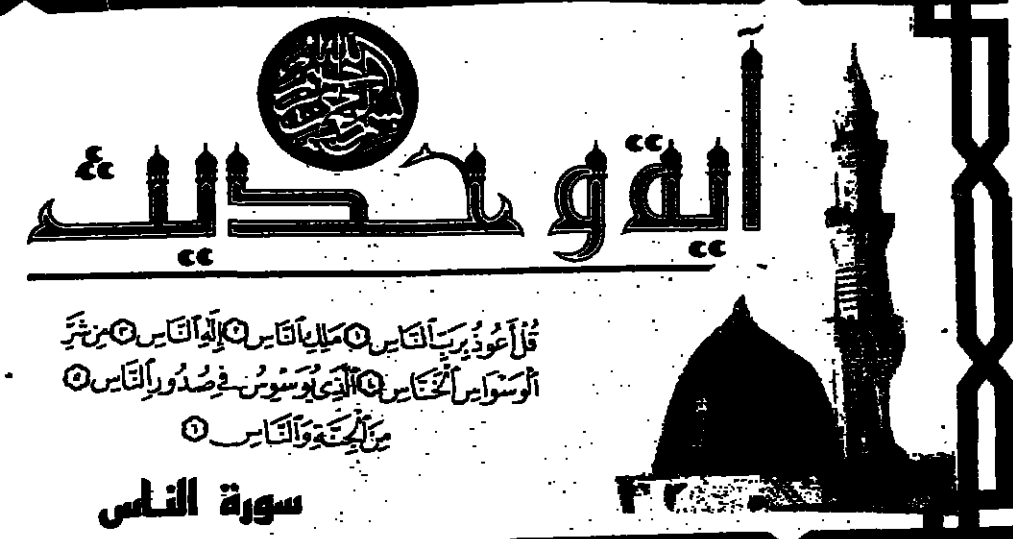 بسم الله الرحمن الرحيم
آية وحديث
قُلْ أَعُوذُ بِرَبِّ ٱلنَّاسِ ١ مَلِكِ ٱلنَّاسِ ٢ إِلَٰهِ ٱلنَّاسِ ٣ مِن شَرِّ
ٱلْوَسْوَاسِ ٱلْخَنَّاسِ ٤ ٱلَّذِى يُوَسْوِسُ فِى صُدُورِ ٱلنَّاسِ ٥
مِنَ ٱلْجِنَّةِ وَٱلنَّاسِ ٦
سورة الناس